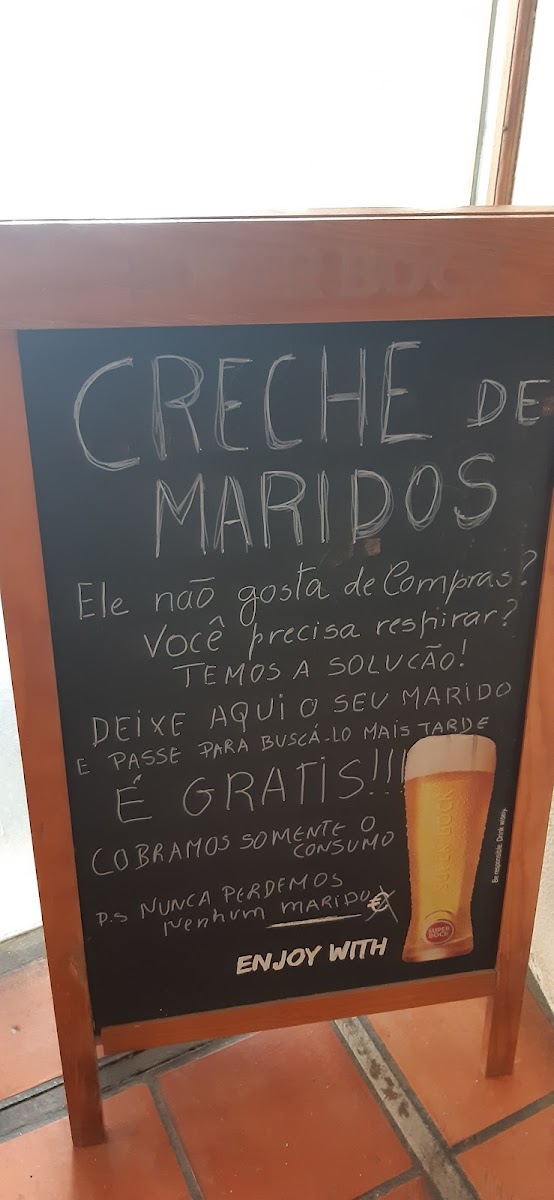 CRECHE DE
MARIDOS
Ele não gosta de Compras?
Você precisa respirar?
TEMOS A SOLUCÃO!
DEIXE AQUI O SEU MARIDO
E PASSE PARA BUSCÁ-LO MAIS TARDE
É GRATIS!!!
COBRAMOS SOMENTE O
CONSUMO
P.S NUNCA PERDEMOS
Nenhum MARIDO
ENJOY WITH
SUPER BOCK
SUPER
BOCK
Be responsible. Drink wisely.